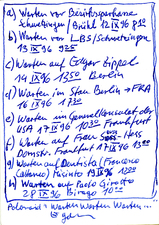 a) Warten vor Bezirkssparkasse
Schwetzingen / Brühl 12 IX 96 8 30
b) Warten vor LBS/Schwetzingen
13 IX 96 9 25
c) Warten auf Edgar Zippel
14 IX 96 13 50 Berlin
d) Warten im Stau Berlin → FRA
16 IX 96
e) Warten im Generalkonsulat der
USA 17 IX 96 10 30 Frankfurt
f) Warten auf Frau Hess
Domstr. Frankfurt 17 IX 96 13 00
g) Warten auf Dentista (Franone
) Ricinto 19 IX 96 12 30
h) Warten auf Paolo Girotto
28 IX 96 10 00
Polaroid: Warten Warten Warten ...